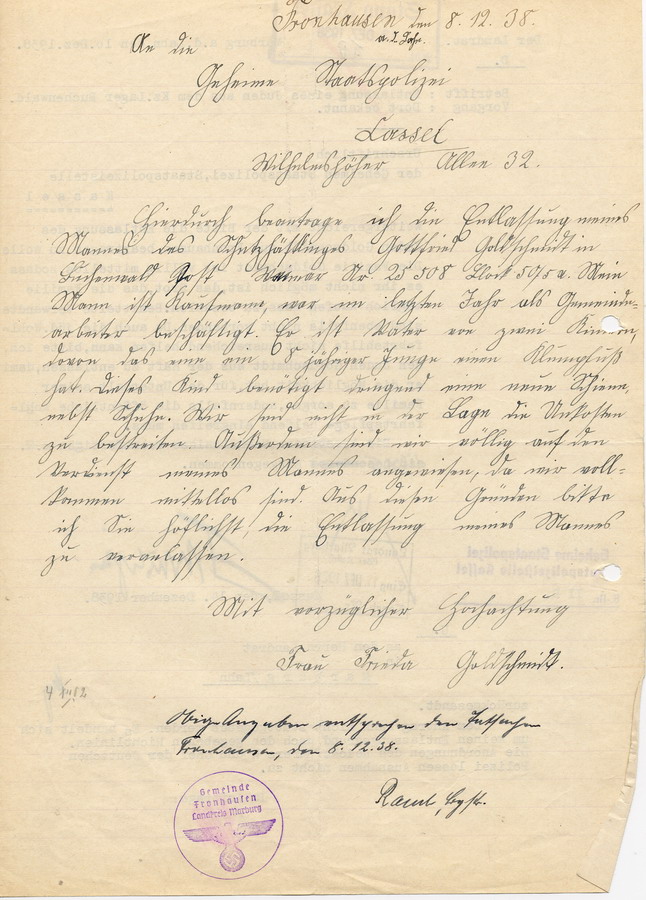 Fronhausen den 8.12.38.
a. d. Lahn.
An die
Geheime Staatspolizei
Cassel
Wilhelmshöher Allee 32.
Hierdurch beantrage ich die Entlassung meines
Mannes des Schutzhäftlinges Gottfried Goldschmidt in
Buchenwald Post Weimar Nr. 25508 Block 50/5a. Mein
Mann ist Kaufmann, war im letzten Jahr als Gemeinde-
arbeiter beschäftigt. Er ist Vater von zwei Kindern,
davon das eine ein 8 jähriger Junge einen Klumpfuß
hat. Dieses Kind benötigt dringend eine neue Schiene,
nebst Schuhe. Wir sind nicht in der Lage die Unkosten
zu bestreiten. Außerdem sind wir völlig auf den
Verdienst meines Mannes angewiesen, da wir voll-
kommen mittellos sind. Aus diesen Gründen bitte
ich Sie höflichst, die Entlassung meines Mannes
zu veranlassen.
Mit vorzüglicher Hochachtung
Frau Frieda Goldschmidt.
Obige Angaben entsprechen den Tatsachen
Fronhausen, den 8.12.38.
Gemeinde
Fronhausen
Landkreis Marburg